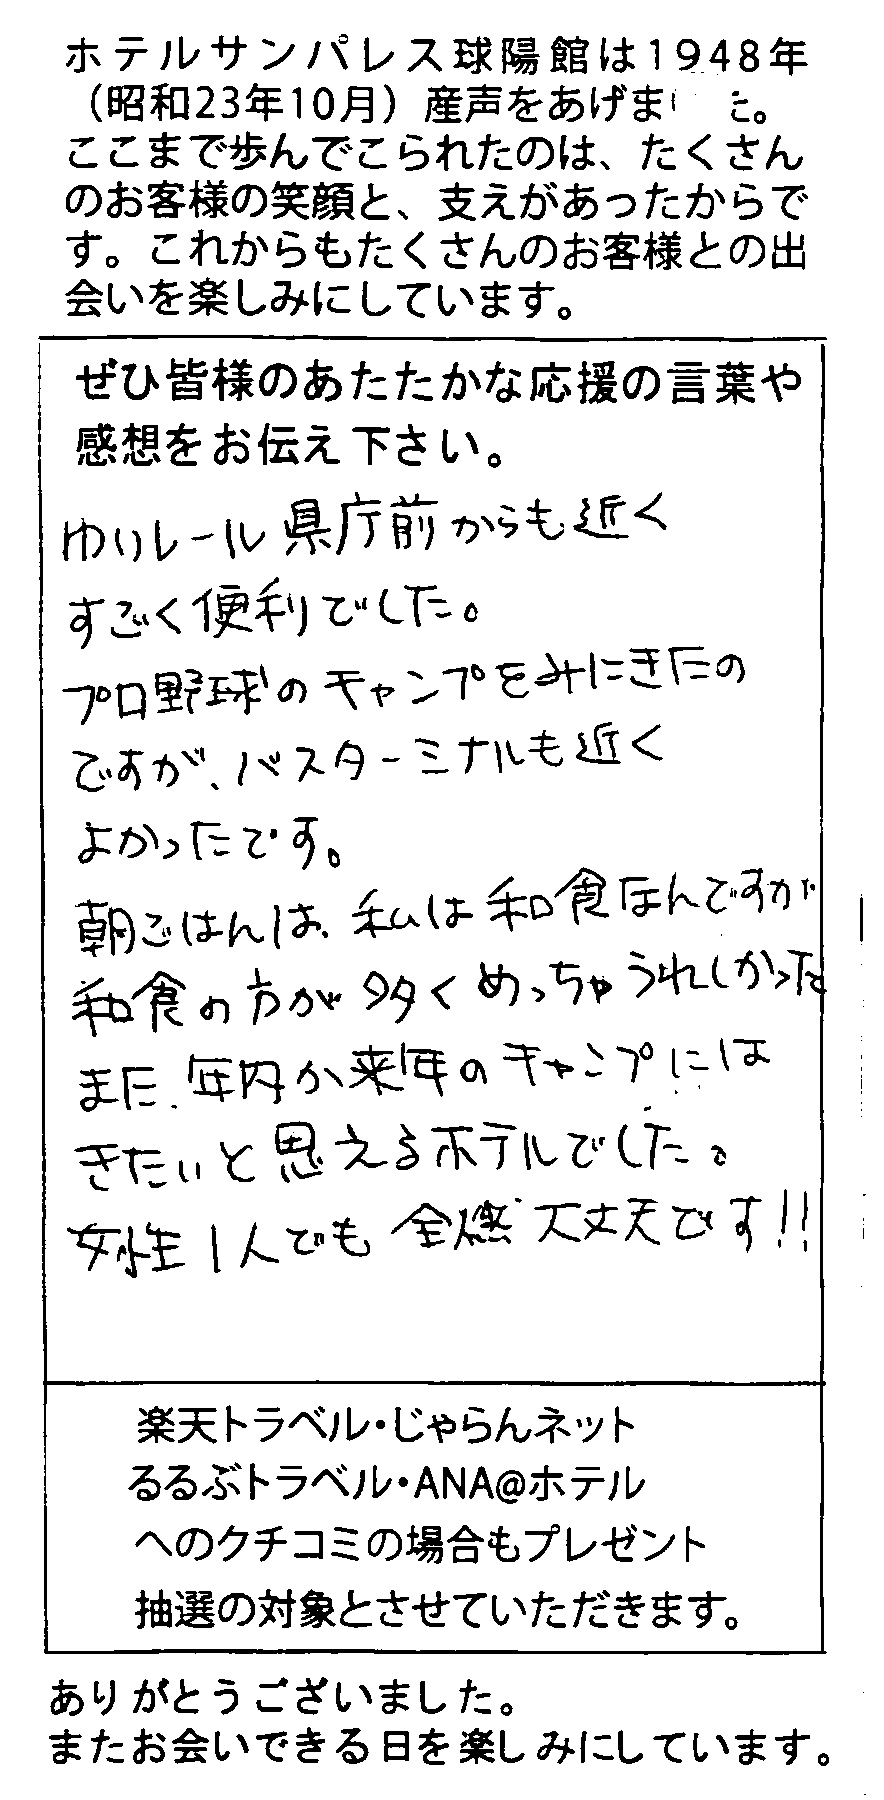 ホテルサンパレス球陽館は1948年
（昭和23年10月）産声をあげました。
ここまで歩んでこられたのは、たくさん
のお客様の笑顔と、支えがあったからで
す。これからもたくさんのお客様との出
会いを楽しみにしています。
ぜひ皆様のあたたかな応援の言葉や
感想をお伝え下さい。
ゆいレール県庁前からも近く
すごく便利でした。
プロ野球のキャンプをみにきたの
ですが、バスターミナルも近く
よかったです。
朝ごはんは、私は和食ほんですが
和食の方が多くめっちゃうれしかった
また、年内か来年のキャンプには
きたいと思えるホテルでした。
女性1人でも全然大丈夫です!!
楽天トラベル・じゃらんネット
るるぶトラベル・ANA@ホテル
へのクチコミの場合もプレゼント
抽選の対象とさせていただきます。
ありがとうございました。
またお会いできる日を楽しみにしています。